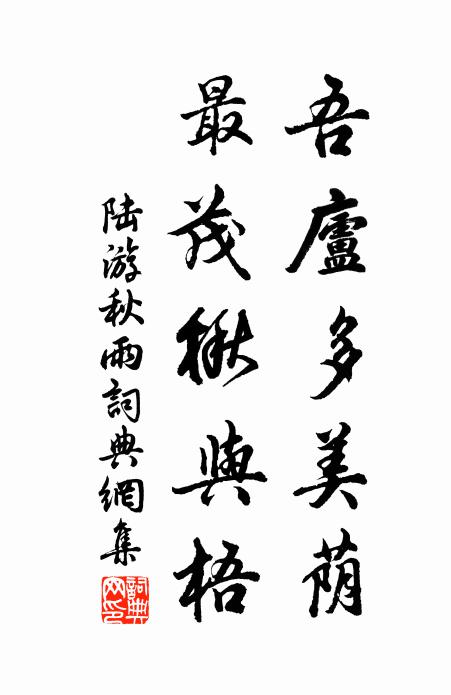 吾廬多美荫
最茂楸與梧
陆游秋雨詞典網集
詞典網印